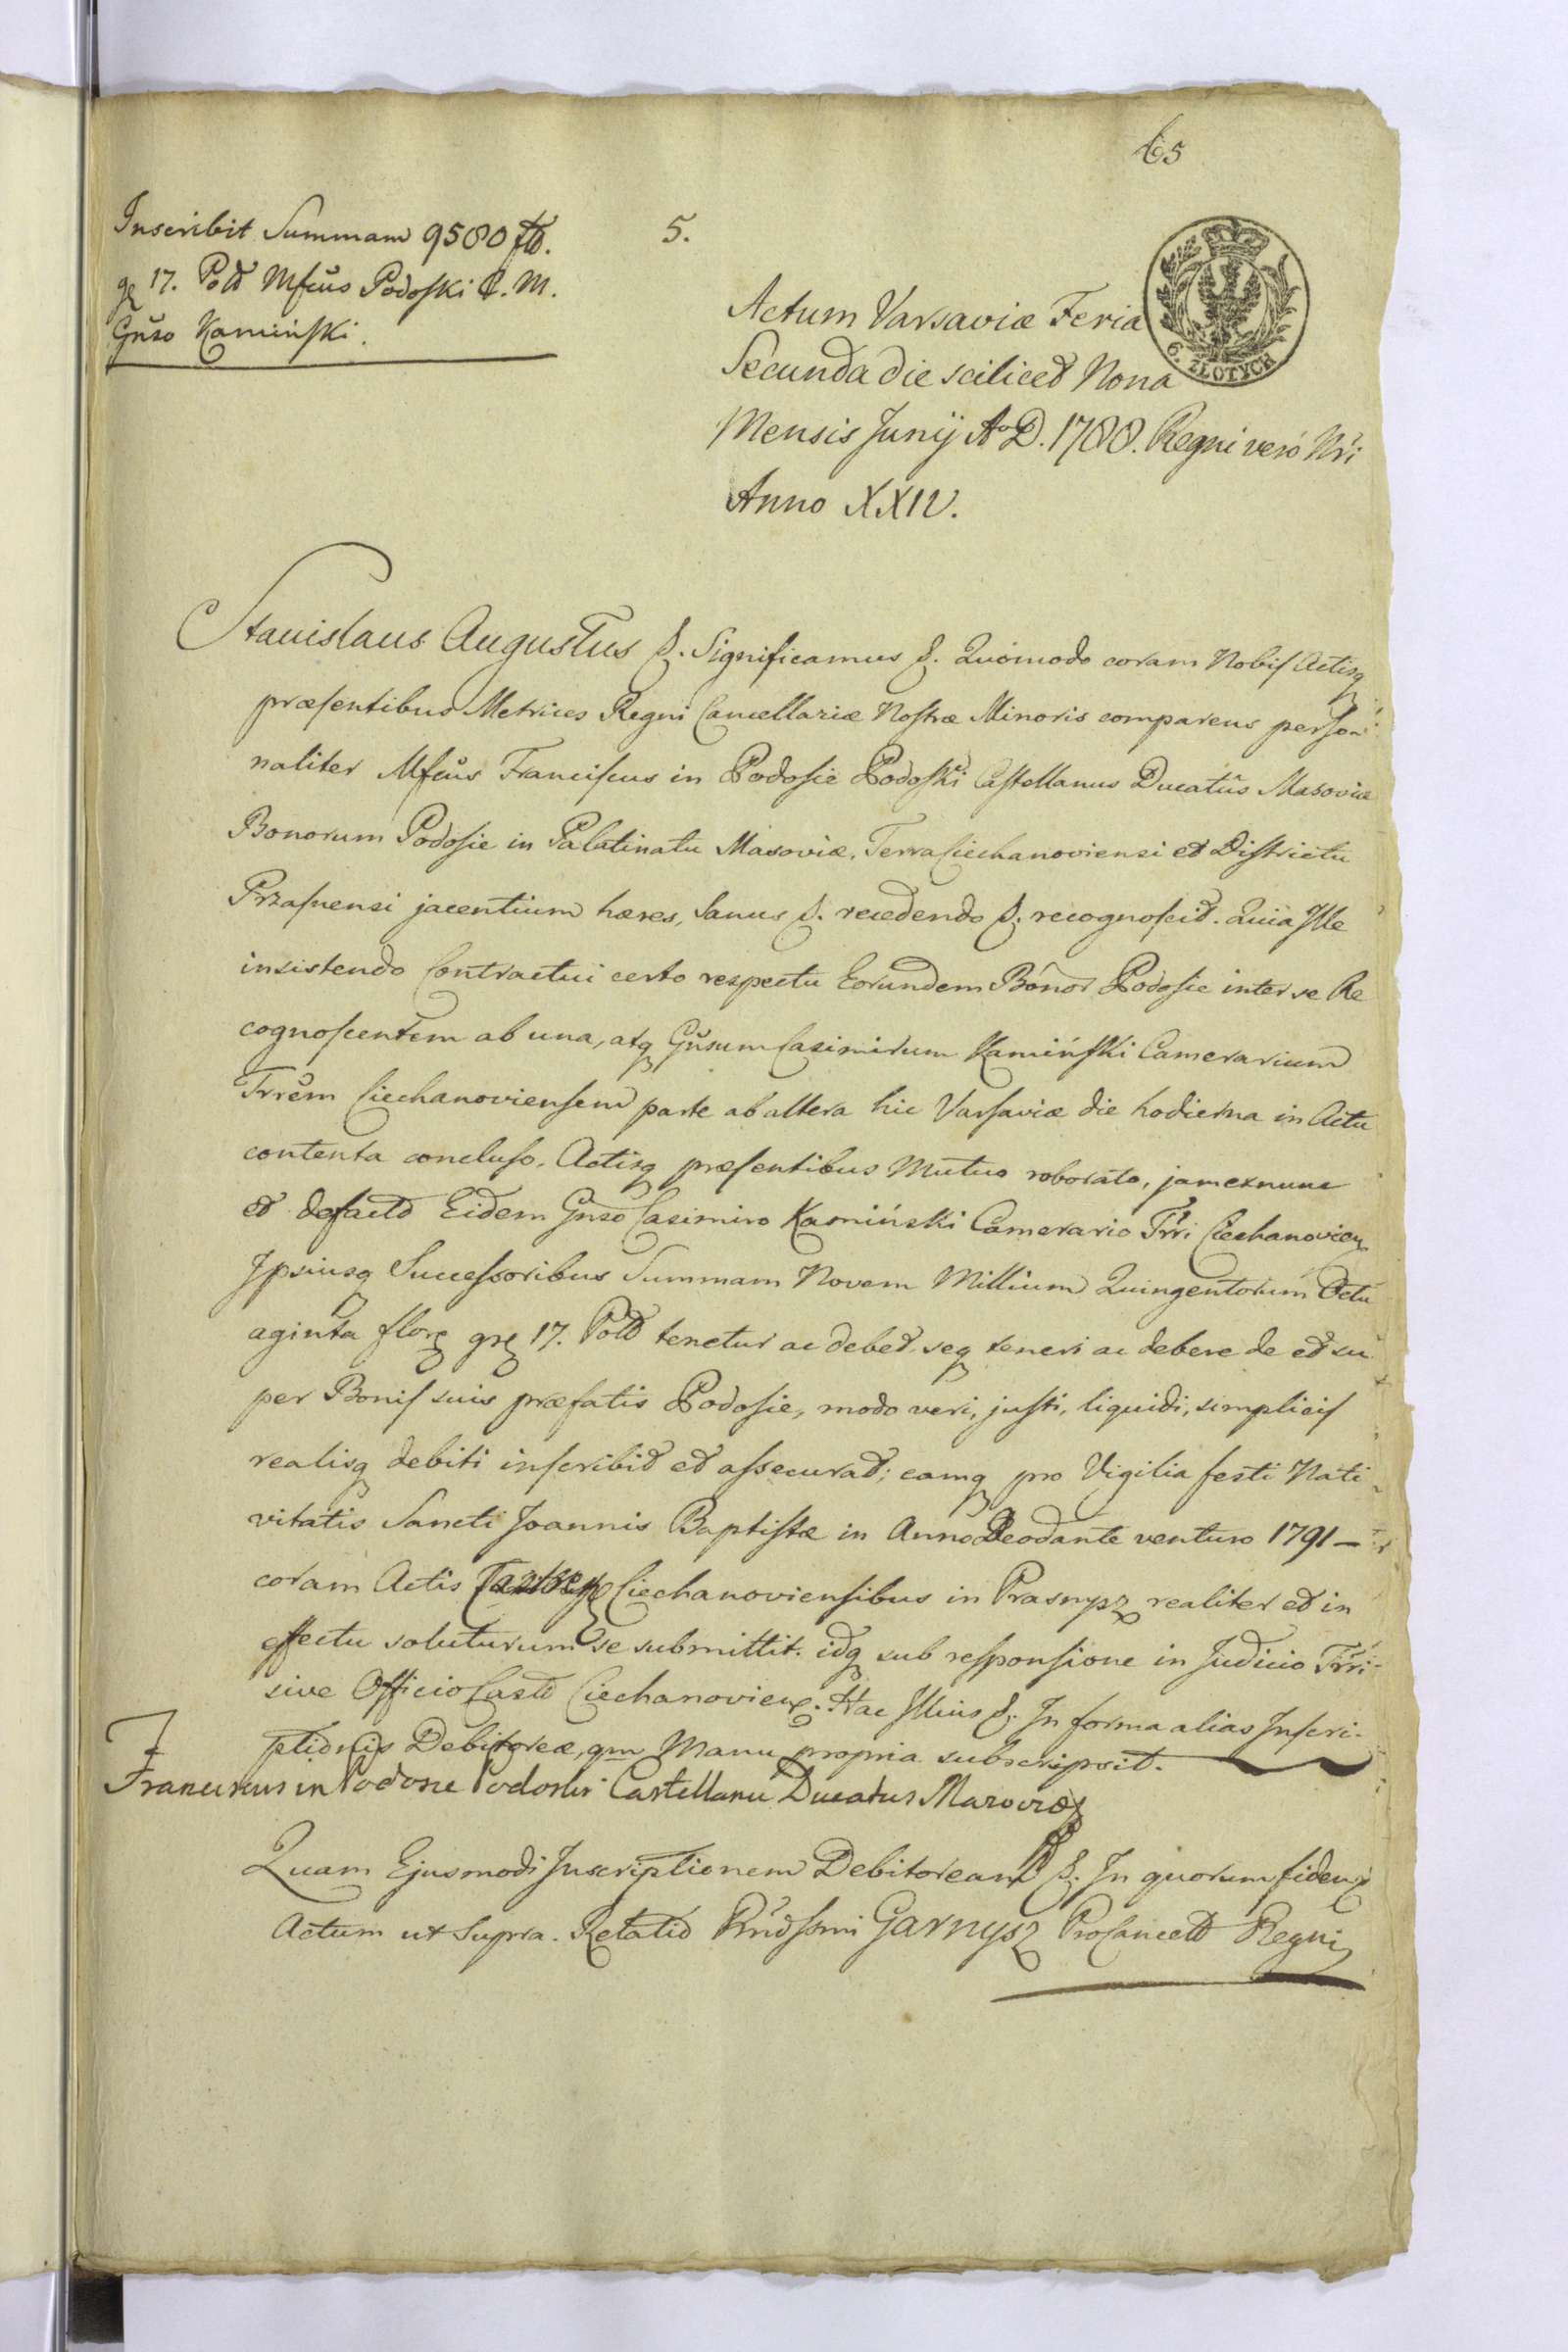 65
Inscribit Summam 9580 fld.
gr 17. Pold Mfcus Podoski C. M.
Gnso Kamiński.
5.
Actum Varsaviæ Feria
Secunda die sciliced Nona
Mensis Junij Ao D. 1788. Regni verò Nri
Anno XXIV.
6. ZŁOTYCH
Stanislaus Augustus &. Significamus &. Quomodo coram Nobis Actisq
præsentibus Metrices Regni Cancellariæ Nostræ Minoris comparens perso-
naliter Mfcus Franciscus in Podosie Podoski Castellanus Ducatûs Masoviæ
Bonorum Podosie in Palatinatu Masoviæ, Terra Ciechanoviensi et Districtu
Przasnensi jacentium hæres, Sanus &. recedendo &. recognoscit. Quia Ille
insistendo Contractui certo respectu Eorundem Bonor Podosie inter se Re
cognoscentem ab una, atq Gnsum Casimirum Kamiński Camerarium
Trrem Ciechanoviensem parte ab altera hic Varsaviæ die hodierna in Actu
contenta concluso, Actisq præsentibus Mutuo roborato, jamexnunc
et defacto Eidem Gnso Casimiro Kamiński Camerario Trri Ciechanovien
Ipsiusq Successoribus Summam Novem Millium Quingentorum Octu
aginta flor gr 17. Pold tenetur ac debet, seq teneri ac debere de et su
per Bonis suis præfatis Podosie, modo veri, justi, liquidi, simplicis
realisq debiti inscribit et assecurat; eamq pro Vigilia festi Nati-
vitatis Sancti Joannis Baptistæ in Anno Deodante venturo 1791 –
coram Actis Ciechanoviensibus in Prasnysz realiter et in
effectu soluturum se submittit. idq sub responsione in Judicio Trri
sive Officio Castr Ciechanovien. Hac Illius &. In forma alias Inscri-
ptionis Debitoreæ, qm Manu propria subscripsit.
Franciscus in Podosie Podoski Castellanu Ducatus Mazoviæ
Quam Ejusmodi Inscriptionem Debitoream &. In quorum fidem
Actum ut Supra. Relatio Rndssmi Garnysz ProCancell Regni